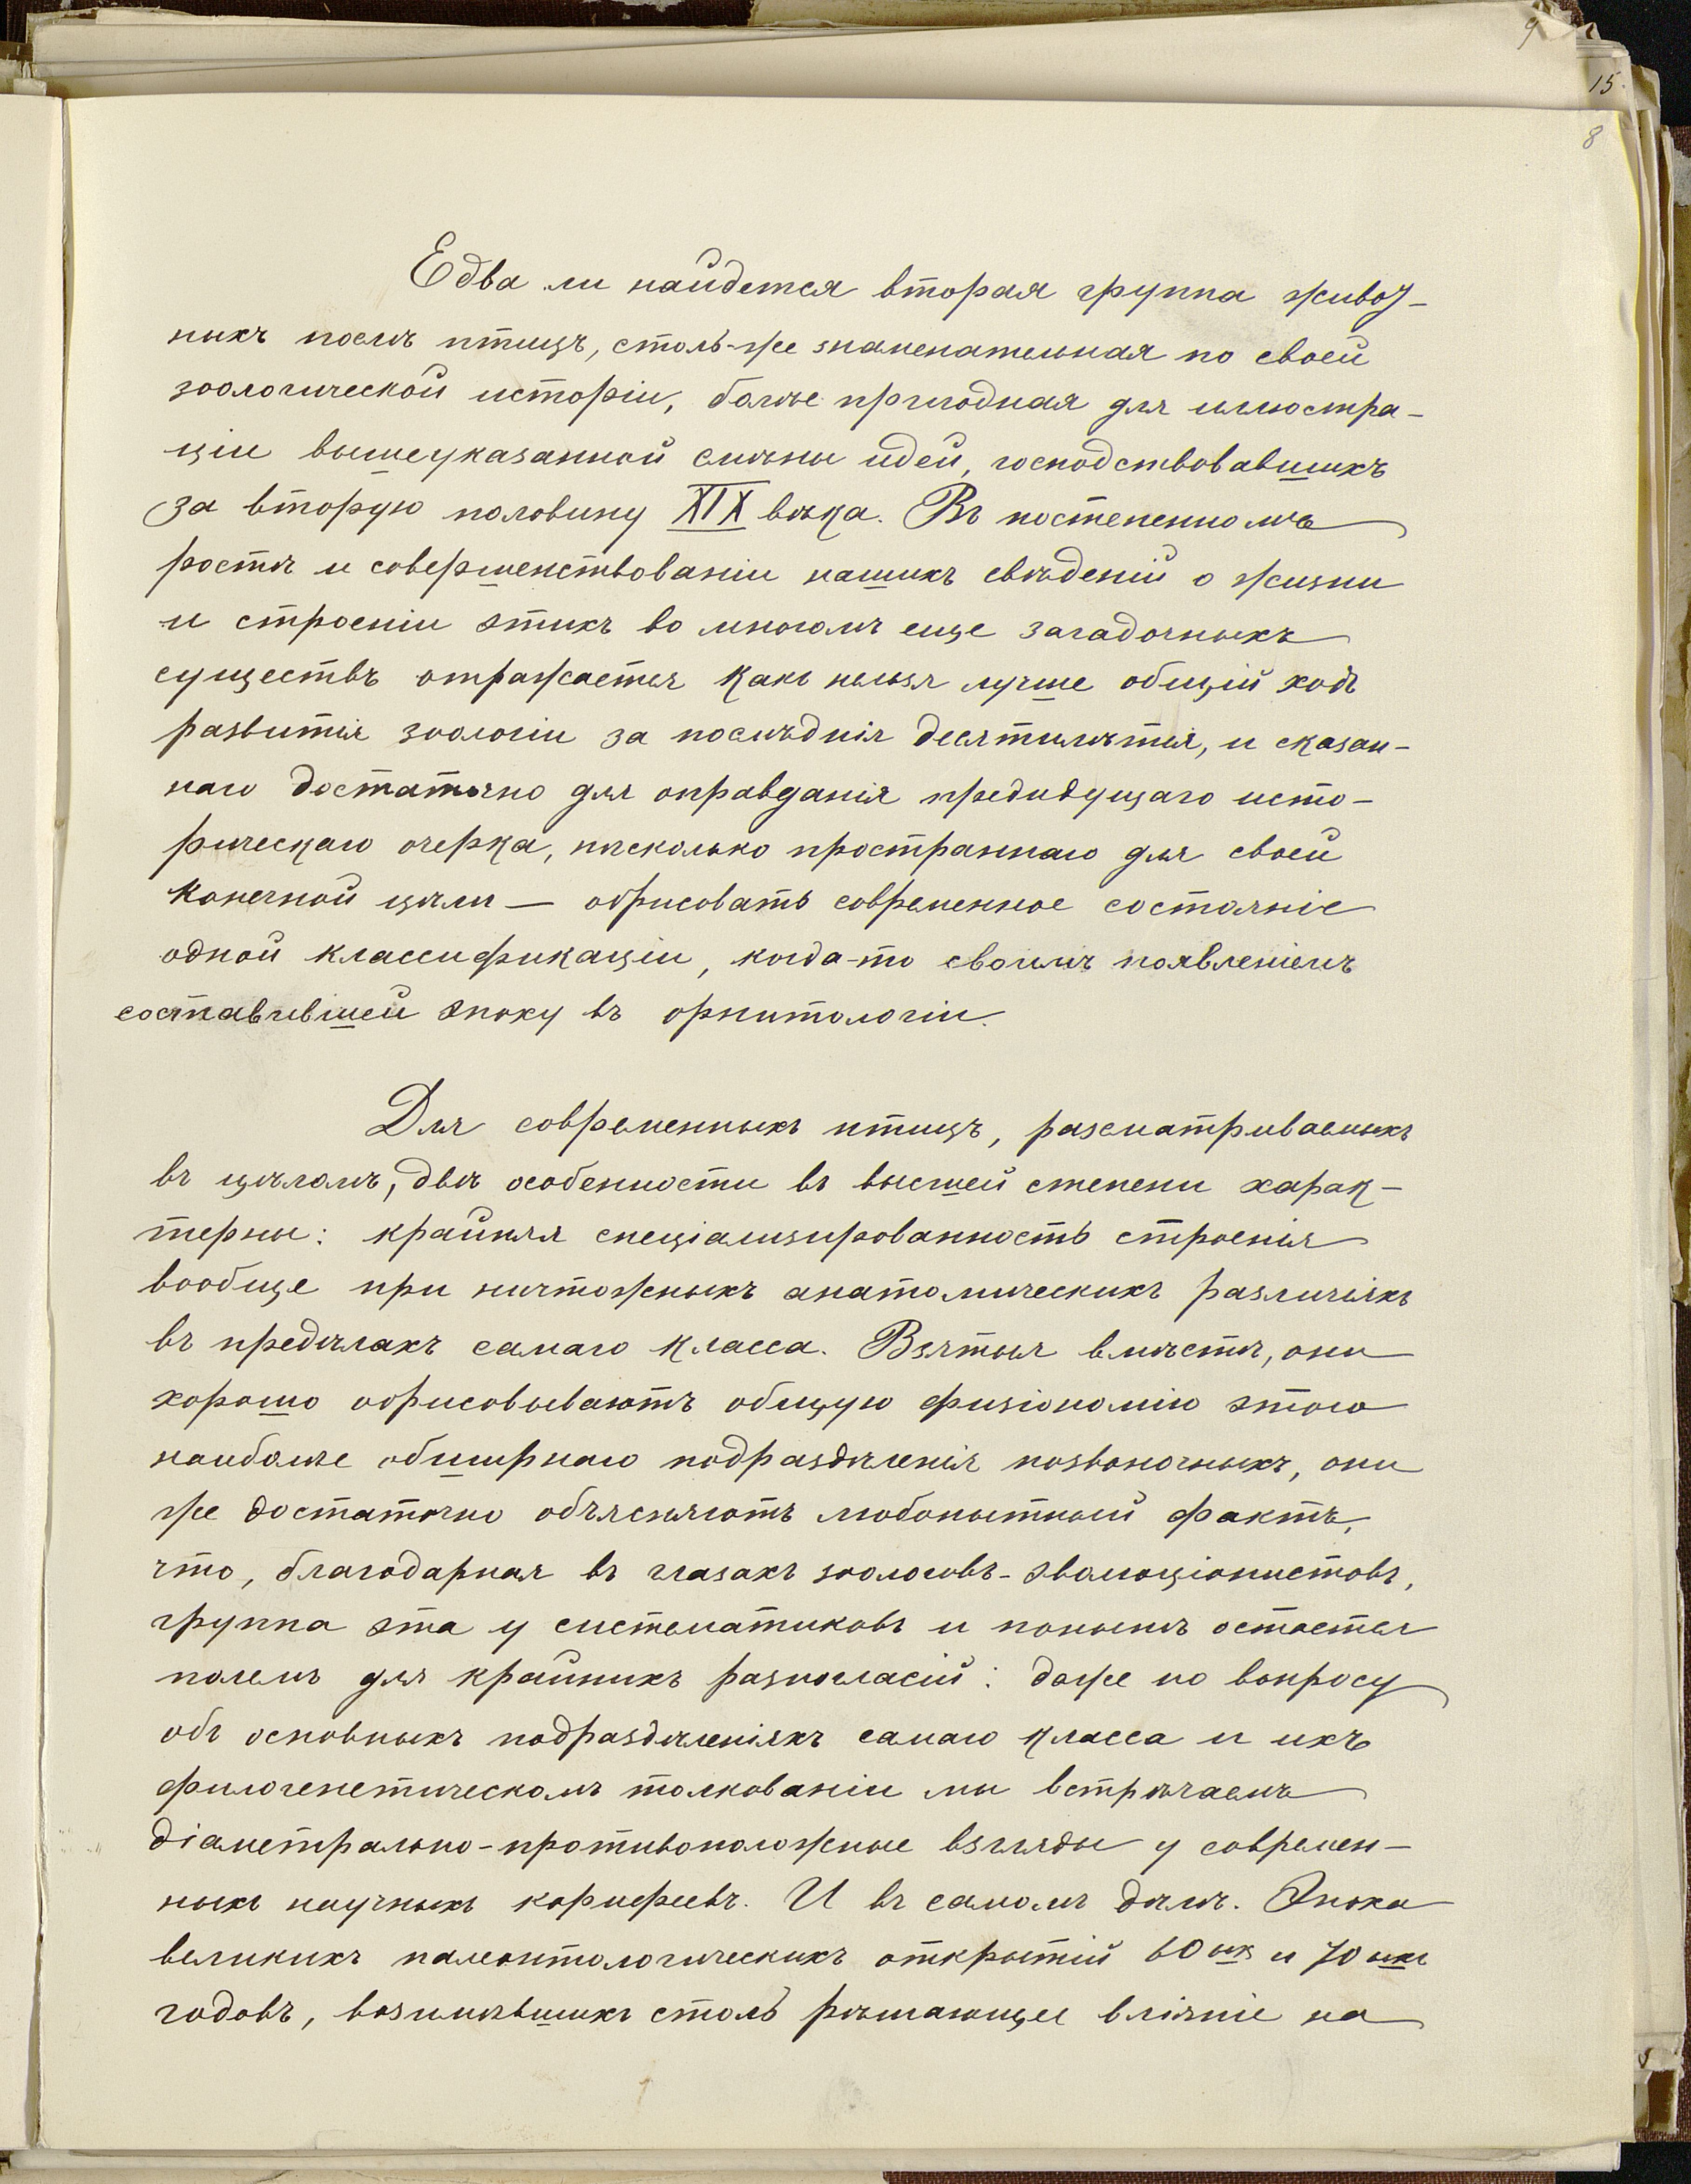 9
15
8
Едва ли найдется вторая группа живот-
ныхъ послѣ птицъ, столь-же знаменательная по своей
зоологической исторіи, болѣе пригодная для иллюстра-
ціи вышеуказанной смѣны идей, господствовавшихъ
за вторую половину XIX вѣка. Въ постепенномъ
ростѣ и совершенствованіи нашихъ свѣденій о жизни
и строеніи этихъ во многомъ еще загадочныхъ
существъ отражается какъ нельзя лучше общій ходъ
развитія зоологіи за послѣднія десятилѣтія, и сказан-
наго достаточно для оправданія предидущаго исто-
рическаго очерка, нѣсколько пространнаго для своей
конечной цѣли — обрисовать современное состояніе
одной классификаціи, когда-то своимъ появленіемъ
составившей эпоху въ орнитологіи.
Для современныхъ птицъ, разсматриваемыхъ
въ цѣломъ, двѣ особенности въ высшей степени харак-
терны: крайняя спеціализированность строенія
вообще при ничтожныхъ анатомическихъ различіяхъ
въ предѣлахъ самаго класса. Взятыя вмѣстѣ, они
хорошо обрисовываютъ общую физіономію этого
наиболѣе обширнаго подраздѣленія позвоночныхъ, они
же достаточно объясняютъ любопытный фактъ,
что, благодарная въ глазахъ зоологовъ-эволюціонистовъ,
группа эта у систематиковъ и понынѣ остается
полемъ для крайнихъ разногласій: даже по вопросу
объ основныхъ подраздѣленіяхъ самаго класса и ихъ
филогенетическомъ толкованіи мы встрѣчаемъ
діаметрально-противоположные взгляды у современ-
ныхъ научныхъ корифеевъ. И въ самомъ дѣлѣ. Эпоха
великихъ палеонтологическихъ открытій 60ыхъ и 70ыхъ
годовъ, возымѣвшихъ столь рѣшающее вліяніе на